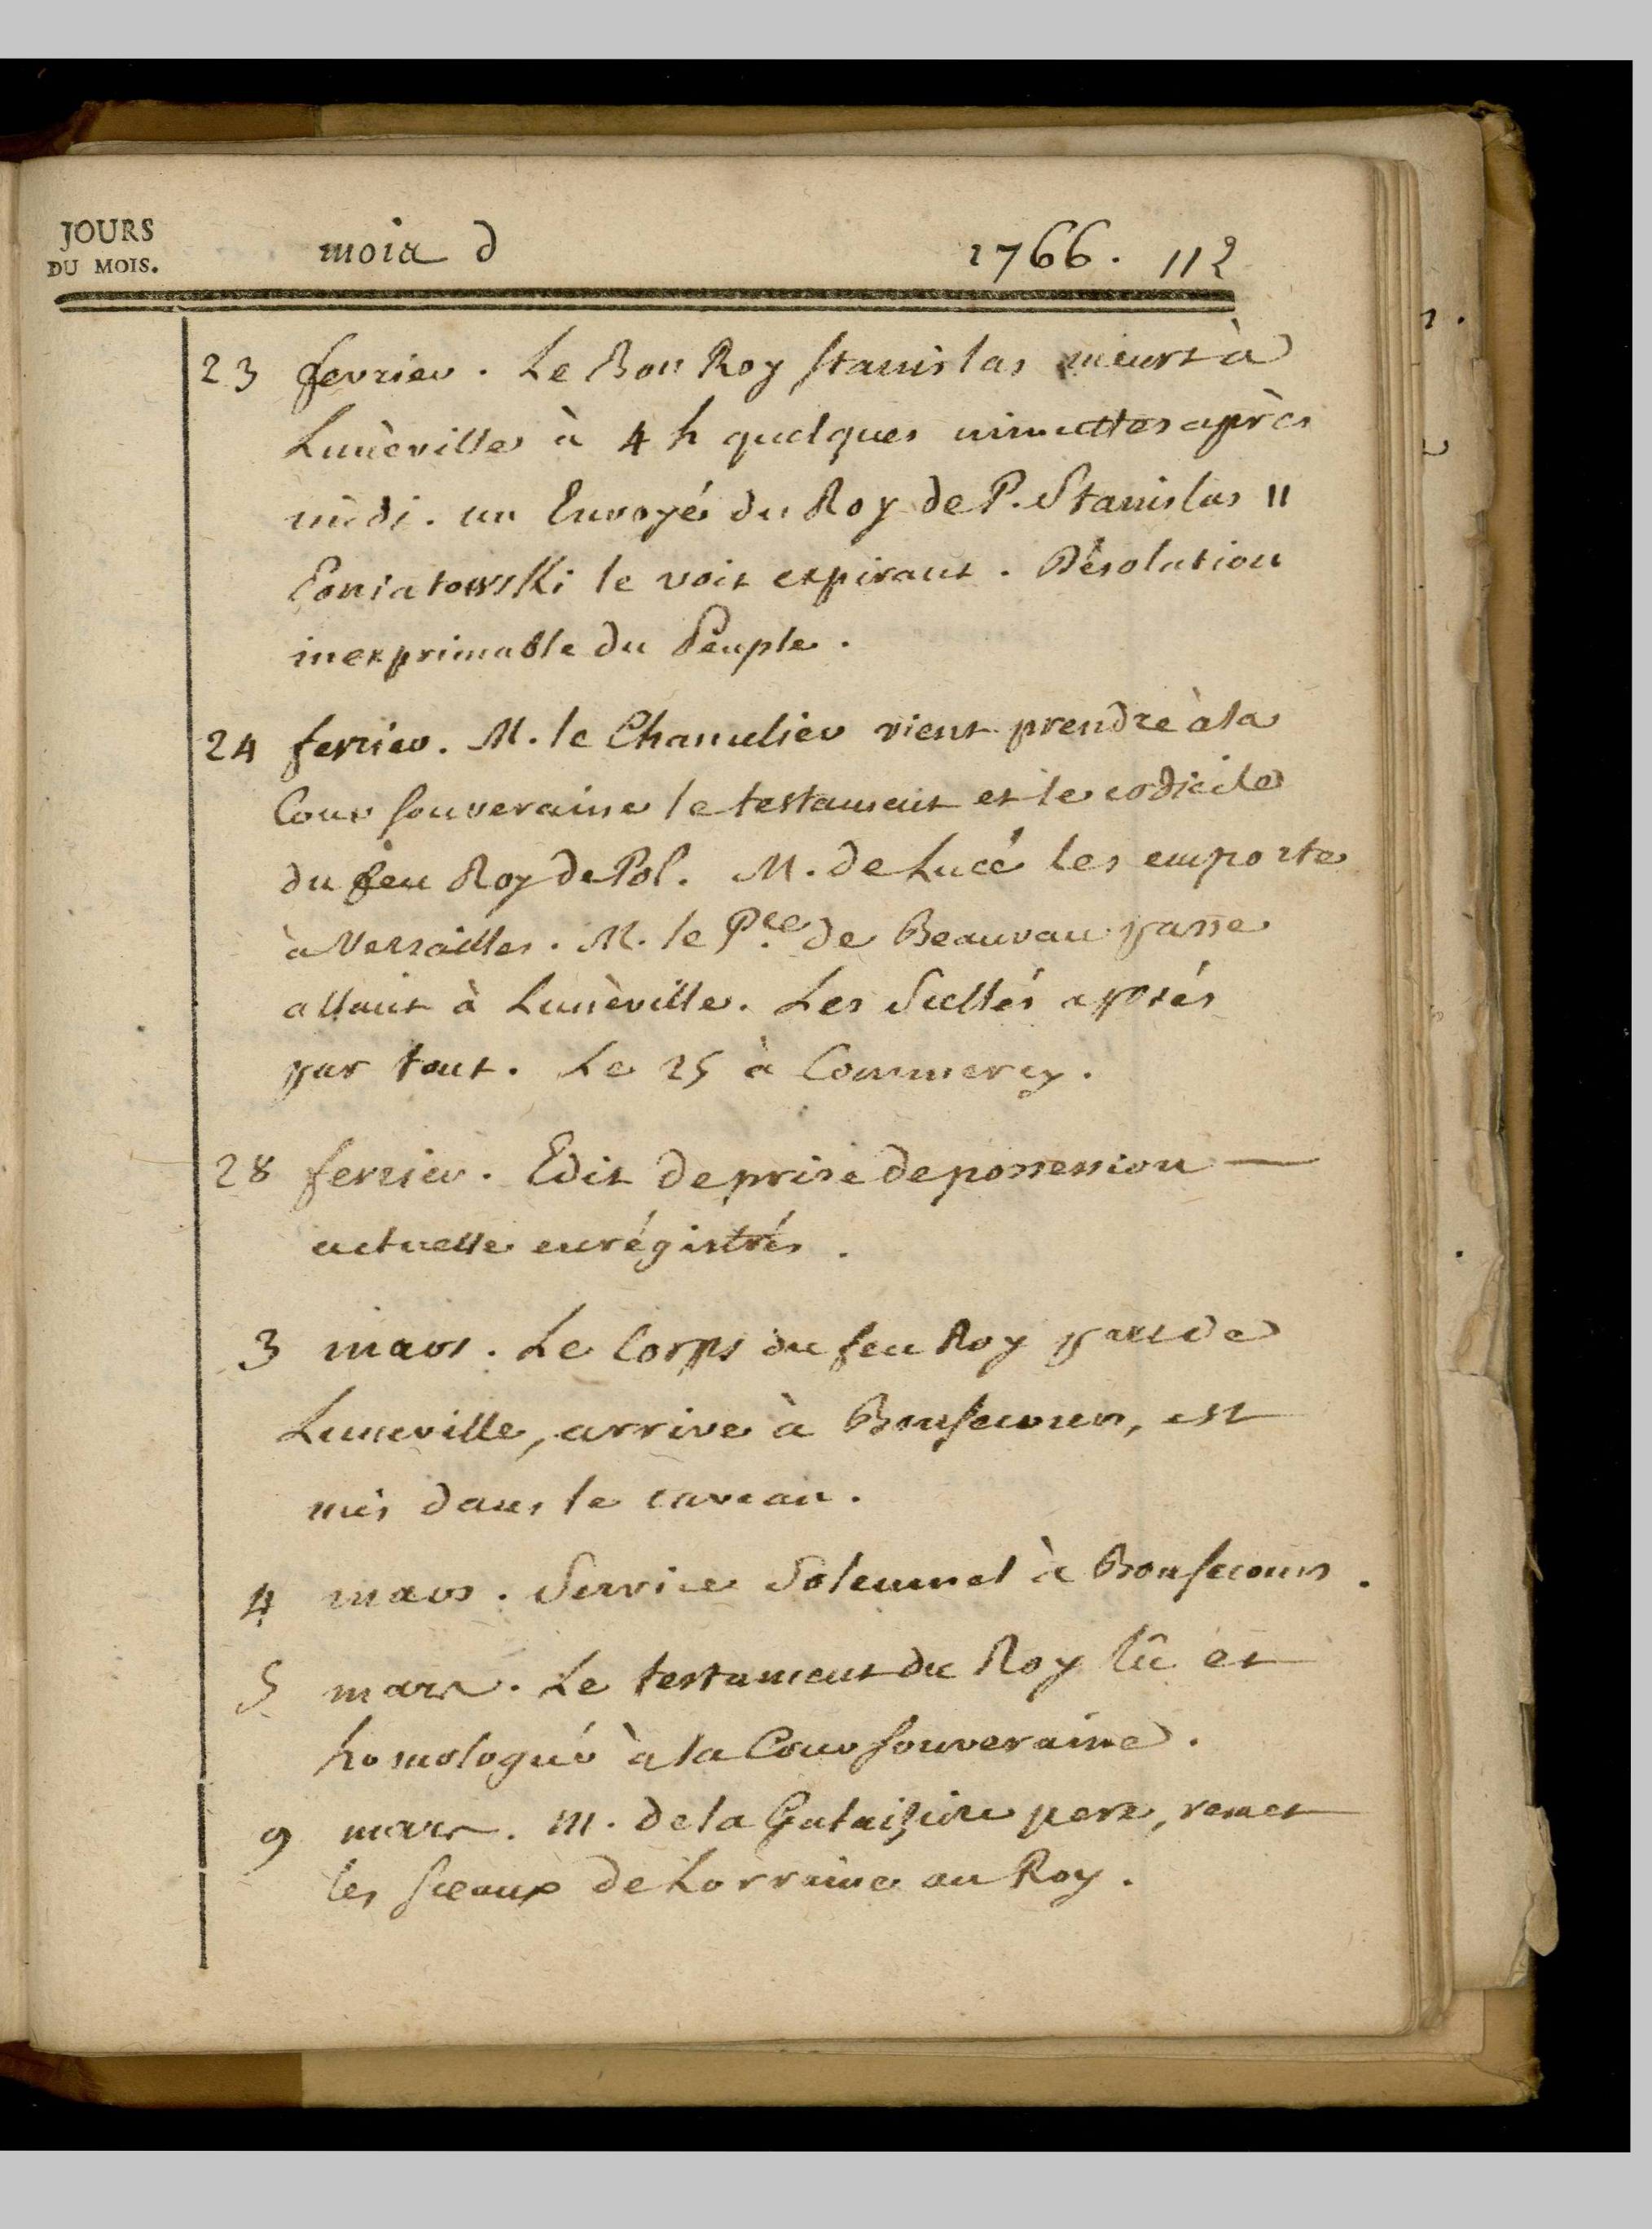 JOURS
DU MOIS.
mois d
1766. 112
23 fevrier. Le Bon Roy Stanislas meurt à
Lunèville à 4 h quelques minuttes après
midi. un Envoyé du Roy de P. Stanislas II
Poniatowski le voit expirant. Désolation
inexprimable du Peuple.
24 fevrier. M. le Chancelier vient prendre à la
Cour Souveraine le testament et le codicile
du feu Roy de Pol. M. de Lucé les emporte
à Versailles. M. le Pce de Beauvau passe
allant à Lunèville. Les Scellés apposés
par tout. Le 25 à Commercy.
28 fevrier. Edit de prise de possession
actuelle enrégistrés.
3 mars. Le Corps du feu Roy part de
Luneville, arrive à Bonsecours, est
mis dans le caveau.
4 mars. Service Solemnel à Bonsecours.
5 mars. Le testament du Roy lû et
homologué à la Cour Souveraine.
9 mars. M. de la Galaiziere pere, remet
les sceaux de Lorraine au Roy.